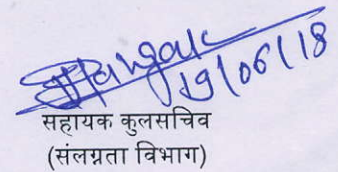 19/06/18
सहायक कुलसचिव
(संलग्नता विभाग)